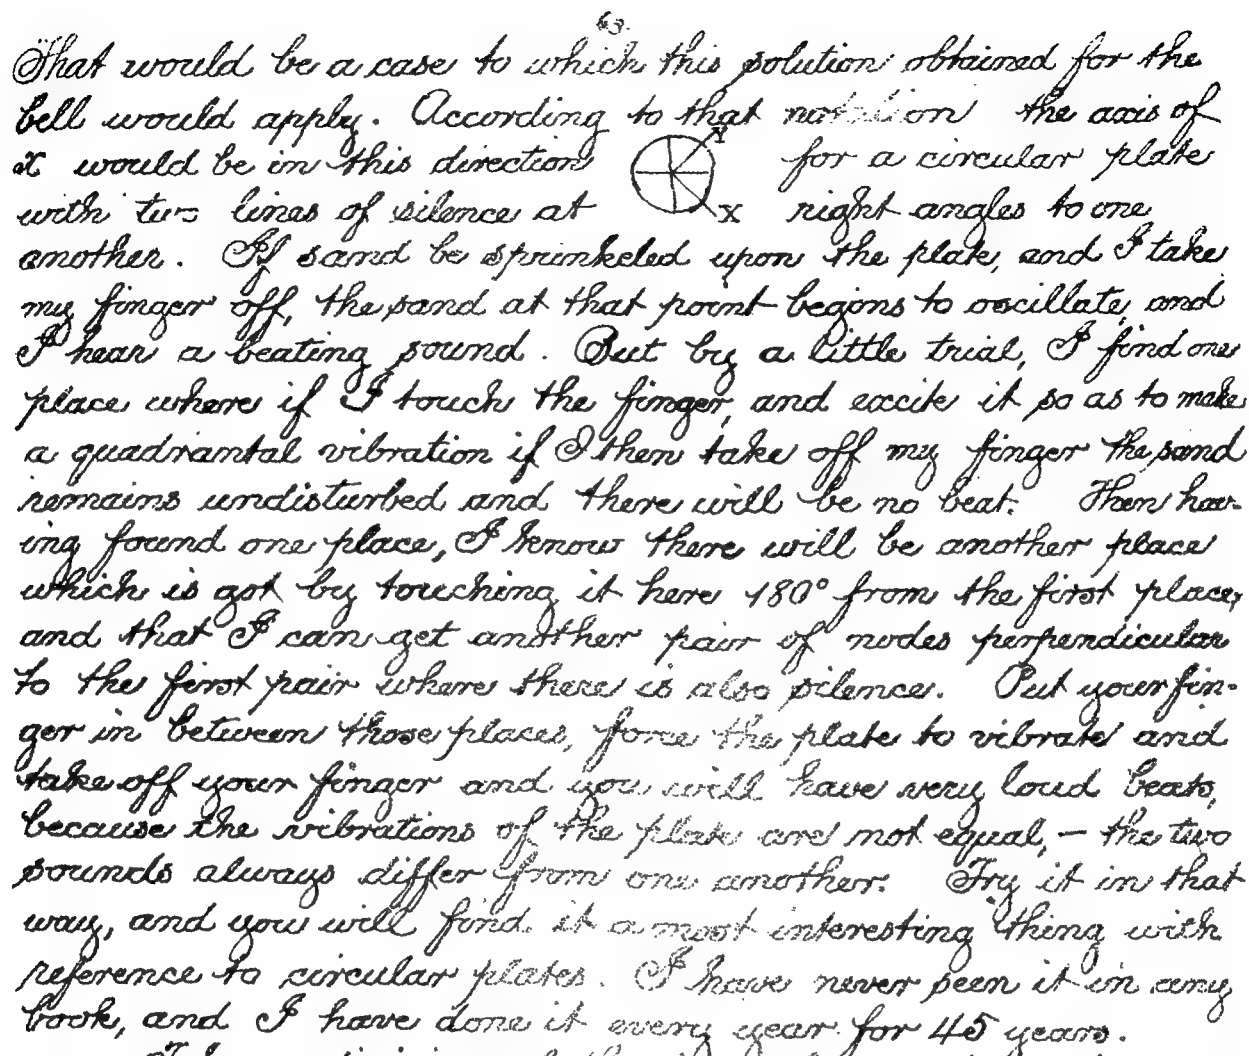 63.
That would be a case to which this solution obtained for the
bell would apply. According to that notation the axis of
x would be in this direction Y for a circular plate
with two lines of silence at X right angles to one
another. If sand be sprinkeled upon the plate, and I take
my finger off, the sand at that point begins to oscillate, and
I hear a beating sound. But by a little trial, I find one
place where if I touch the finger, and excite it so as to make
a quadrantal vibration if I then take off my finger the sand
remains undisturbed and there will be no beat. Then hav-
ing found one place, I know there will be another place
which is got by touching it here 180° from the first place,
and that I can get another pair of nodes perpendicular
to the first pair where there is also silence. Put your fin-
ger in between those places, force the plate to vibrate and
take off your finger and you will have very loud beats,
because the vibrations of the plate are not equal, — the two
sounds always differ from one another. Try it in that
way, and you will find it a most interesting thing with
reference to circular plates. I have never seen it in any
book, and I have done it every year for 45 years.